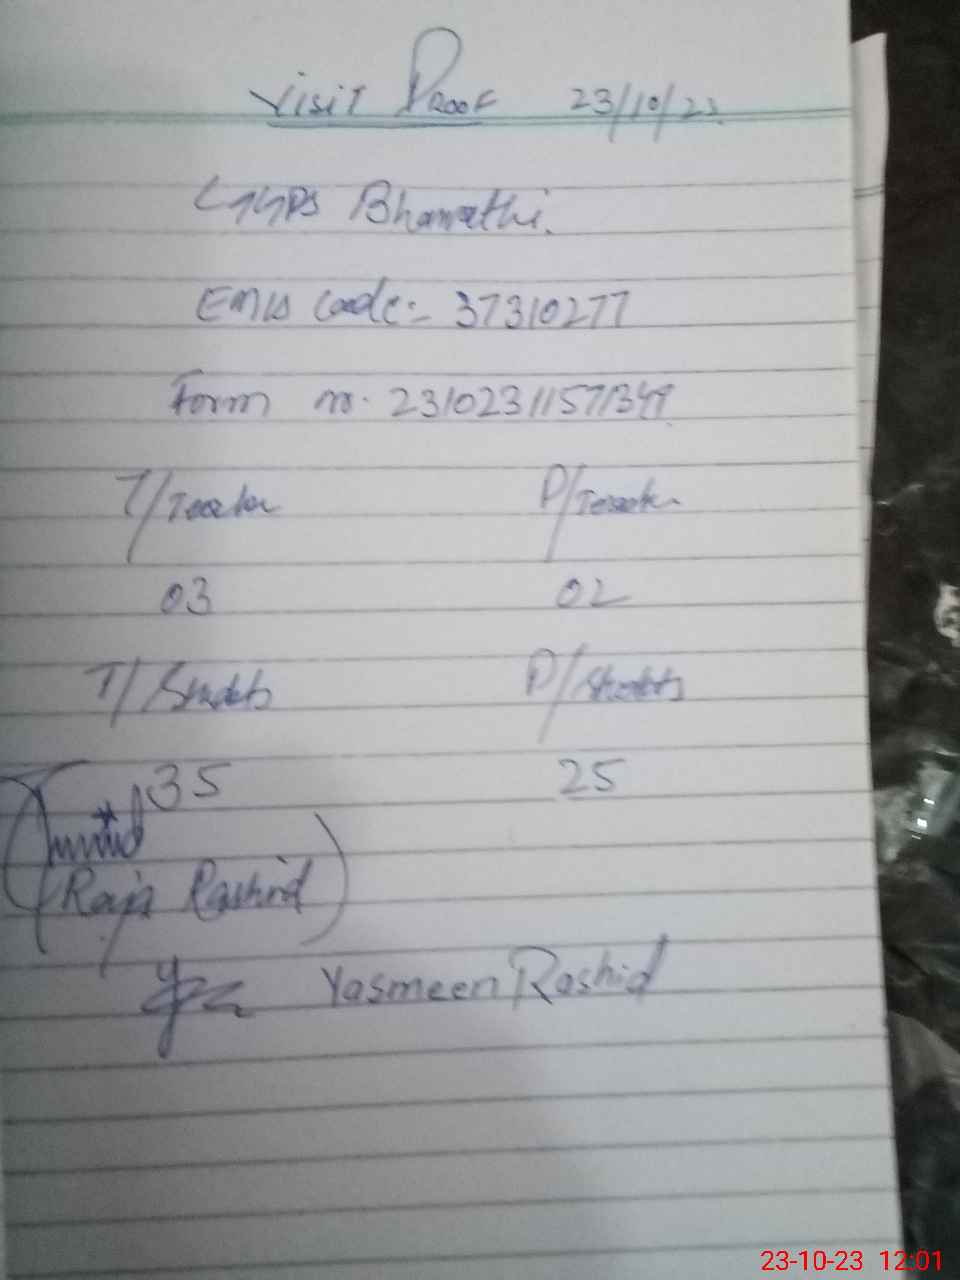 Visit Proof 23/10/23
GGPS Bhamrathi.
EMIS Code:- 37310277
Form no. 23102311571349
T/Teacher P/Teacher
03 02
T/Students P/Students
35 25
(Raja Rashid)
Yasmeen Rashid
23-10-23 12:01